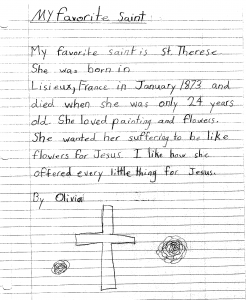 My Favorite Saint
My favorite saint is St. Therese.
She was born in
Lisieux, France in January 1873 and
died when she was only 24 years
old. She loved painting and flowers.
She wanted her suffering to be like
flowers for Jesus. I like how she
offered every little thing for Jesus.
By Olivia